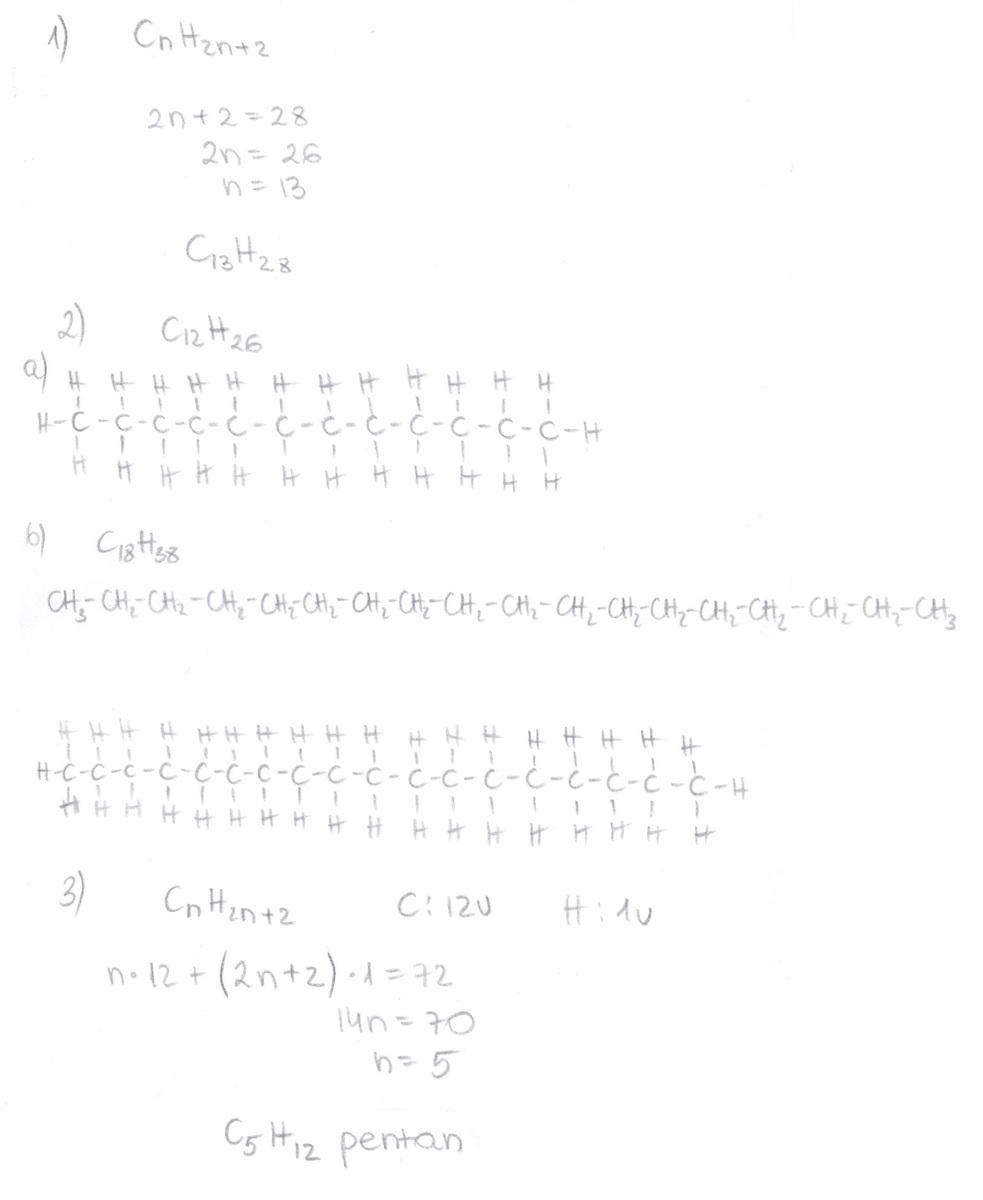 1) CnH2n+2
2n + 2 = 28
2n = 26
n = 13
C13H28
2) C12H26
a) H H H H H H H H H H H H
H-C-C-C-C-C-C-C-C-C-C-C-C-H
H H H H H H H H H H H H
b) C18H38
CH3-CH2-CH2-CH2-CH2-CH2-CH2-CH2-CH2-CH2-CH2-CH2-CH2-CH2-CH2-CH2-CH2-CH3
H H H H H H H H H H H H H H H H H H
H-C-C-C-C-C-C-C-C-C-C-C-C-C-C-C-C-C-C-H
H H H H H H H H H H H H H H H H H H
3) CnH2n+2 C: 12u H: 1u
n·12 + (2n+2)·1 = 72
14n = 70
n = 5
C5H12 pentan